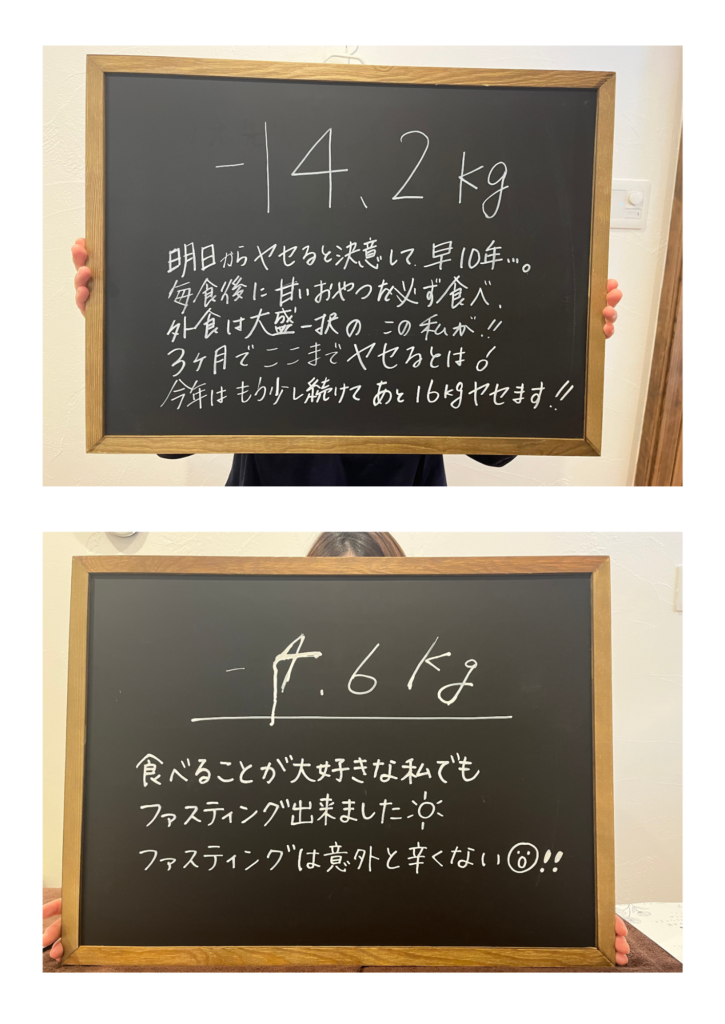 -14.2kg
明日からヤセると決意して 早10年…。
毎食後に甘いおやつを必ず食べ、
外食は大盛一択の この私が!!
3ヶ月でここまでヤセるとは!
今年はもう少し続けて あと16kgヤセます!!
-4.6kg
食べることが大好きな私でも
ファスティング出来ました
ファスティングは意外と辛くない!!